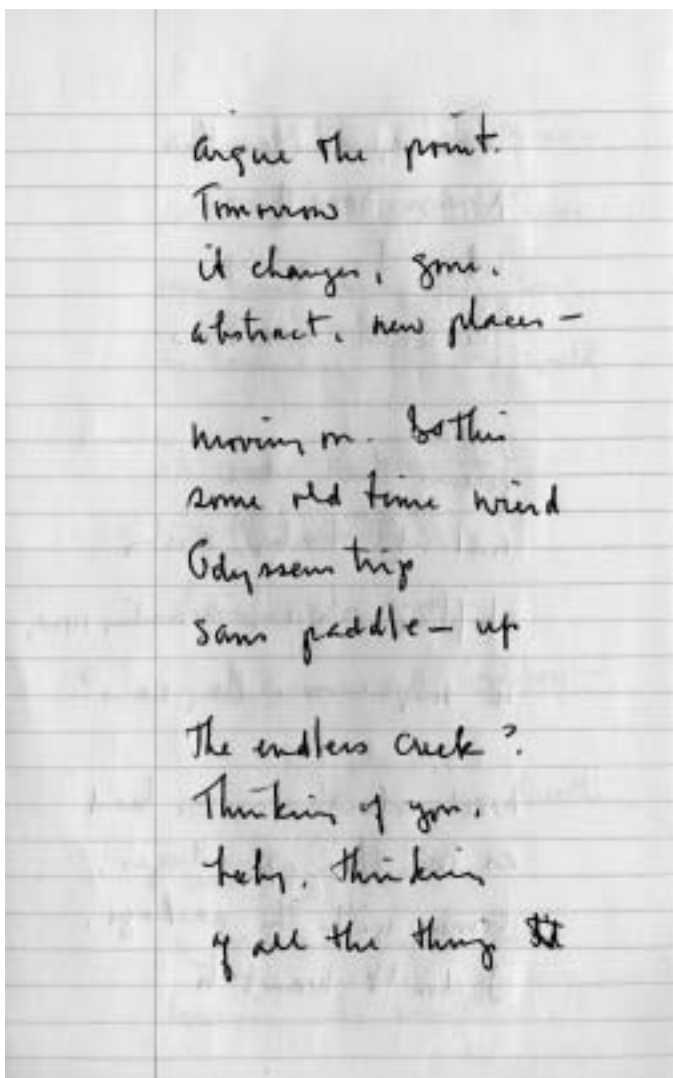 argue the point.
Tomorrow
it changes, gone,
abstract, new places –
moving on. Is this
some old time weird
Odysseus trip
sans paddle – up
The endless creek?
Thinking of you,
baby, thinking
of all the things